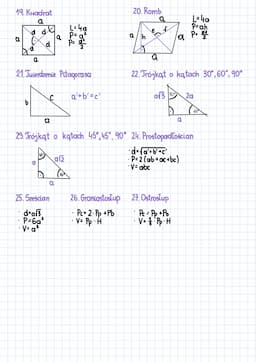 19. Kwadrat
a
a
a
a
d
d
L=4a
P=a²
P=d²/2
20. Romb
a
a
a
a
h
e
f
L=4a
P=ah
P=ef/2
21. Twierdzenie Pitagorasa
b
c
a
a²+b²=c²
22. Trójkąt o kątach 30°, 60°, 90°
a√3
2a
a
23. Trójkąt o kątach 45°, 45°, 90°
a
a√2
a
24. Prostopadłościan
· d=√a²+b²+c²
· P=2(ab+ac+bc)
· V=abc
25. Sześcian
· d=a√3
· P=6a²
· V=a³
26. Graniastosłup
· Pc=2·Pp+Pb
· V=Pp·H
27. Ostrosłup
· Pc=Pp+Pb
· V=⅓Pp·H